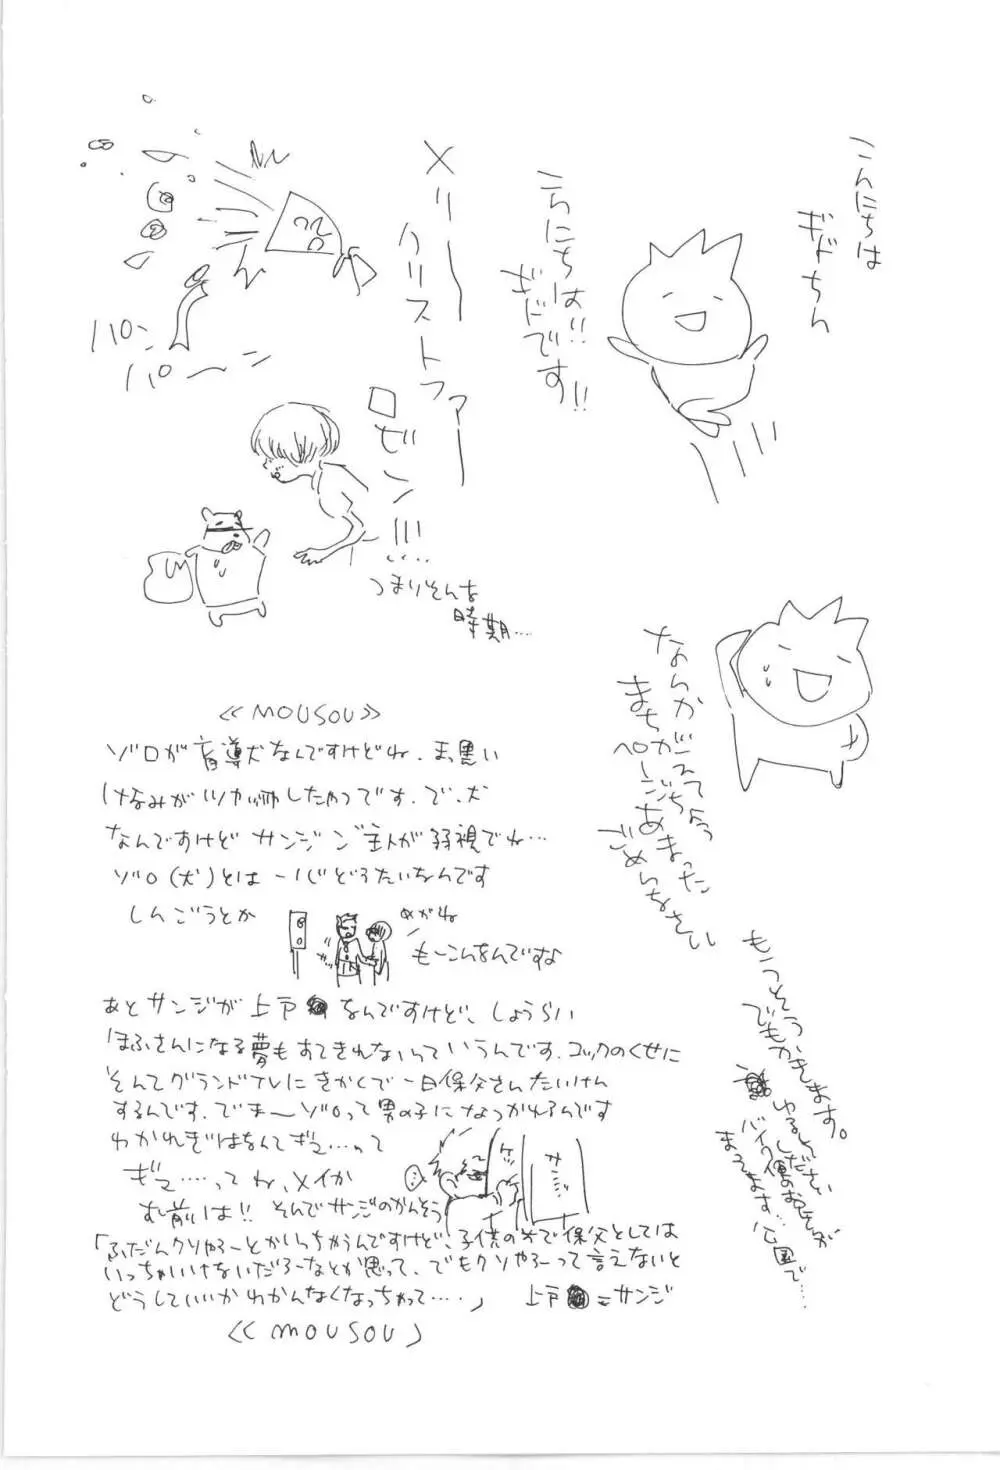 こんにちは
ギドちん
こんにちは!!
ギドです!!
メリー
クリストファー
ロビン!!!…
つまりそんな
時期…
パン
パーン
なんか
まちがえちゃって
ページあまった
ごめんなさい
もうそう
でもかきます。
ゆるしください
バイク便のお兄さんが
まってます…公園で…
《MOUSOU》
ゾロが盲導犬なんですけどね、まっ黒い
けなみがツヤッツヤしたやつです。で、犬
なんですけどサンジ ご主人が弱視でね…
ゾロ(犬)とは一心どうたいなんです
しんごうとか
めがね
もーこんなんですな
あとサンジが上戸 なんですけど、しょうらい
ほふさんになる夢もすてきれないっていうんです。コックのくせに
そんでグランドテレビきかくで一日保父さんたいけん
するんです。でまーゾロって男の子になつかれるんです
わかれぎはなんてギュ…って
ギュ……ってね、メイか
む前は!! そんでサンジのかんそう
「ふだんクソやろーとかいっちゃうんですけど、子供の前で保父としては
いっちゃいけないだろーなとか思って、でもクソやろーって言えないと
どうしていいかわかんなくなっちゃって……」 上戸 =サンジ
《MOUSOU》